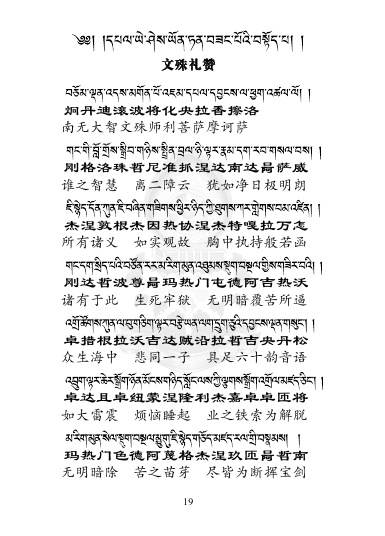 ༄༅། །དཔལ་ཡེ་ཤེས་ཡོན་ཏན་བཟང་པོའི་བསྟོད་པ། །
文殊礼赞
བཅོམ་ལྡན་འདས་མགོན་པོ་འཇམ་དཔལ་དབྱངས་ལ་ཕྱག་འཚལ་ལོ། །
炯丹迪滚波将化央拉香擦洛
南无大智文殊师利菩萨摩诃萨
གང་གི་བློ་གྲོས་སྒྲིབ་གཉིས་སྤྲིན་བྲལ་ཉི་ལྟར་རྣམ་དག་རབ་གསལ་བས། །
刚格洛珠哲尼准抓涅达南达昌萨威
谁之智慧 离二障云 犹如净日极明朗
ཇི་སྙེད་དོན་ཀུན་ཇི་བཞིན་གཟིགས་ཕྱིར་ཉིད་ཀྱི་ཐུགས་ཀར་གླེགས་བམ་འཛིན། །
杰涅敦根杰因热协涅杰特嘎拉万怎
所有诸义 如实观故 胸中执持般若函
གང་དག་སྲིད་པའི་བཙོན་རར་མ་རིག་མུན་འཐུམས་སྡུག་བསྔལ་གྱིས་གཟིར་བའི། །
刚达哲波尊昌玛热门屯德阿吉热沃
诸有于此 生死牢狱 无明暗覆苦所逼
འགྲོ་ཚོགས་ཀུན་ལ་བུ་གཅིག་ལྟར་བརྩེ་ཡན་ལག་དྲུག་ཅུའི་དབྱངས་ལྡན་གསུང་། །
卓措根拉沃吉达贼沿拉哲吉央丹松
众生海中 悲同一子 具足六十韵音语
འབྲུག་ལྟར་ཆེར་སྒྲོག་ཉོན་མོངས་གཉིད་སློང་ལས་ཀྱི་ལྕགས་སྒྲོག་འགྲོལ་མཛད་ཅིང་། །
卓达且卓纽蒙涅隆利杰嘉卓卓匝将
如大雷震 烦恼睡起 业之铁索为解脱
མ་རིག་མུན་སེལ་སྡུག་བསྔལ་མྱུ་གུ་ཇི་སྙེད་གཅོད་མཛད་རལ་གྲི་བསྣམས། །
玛热门色德阿蔑格杰涅玖匝昌哲南
无明暗除 苦之苗芽 尽皆为断挥宝剑
19